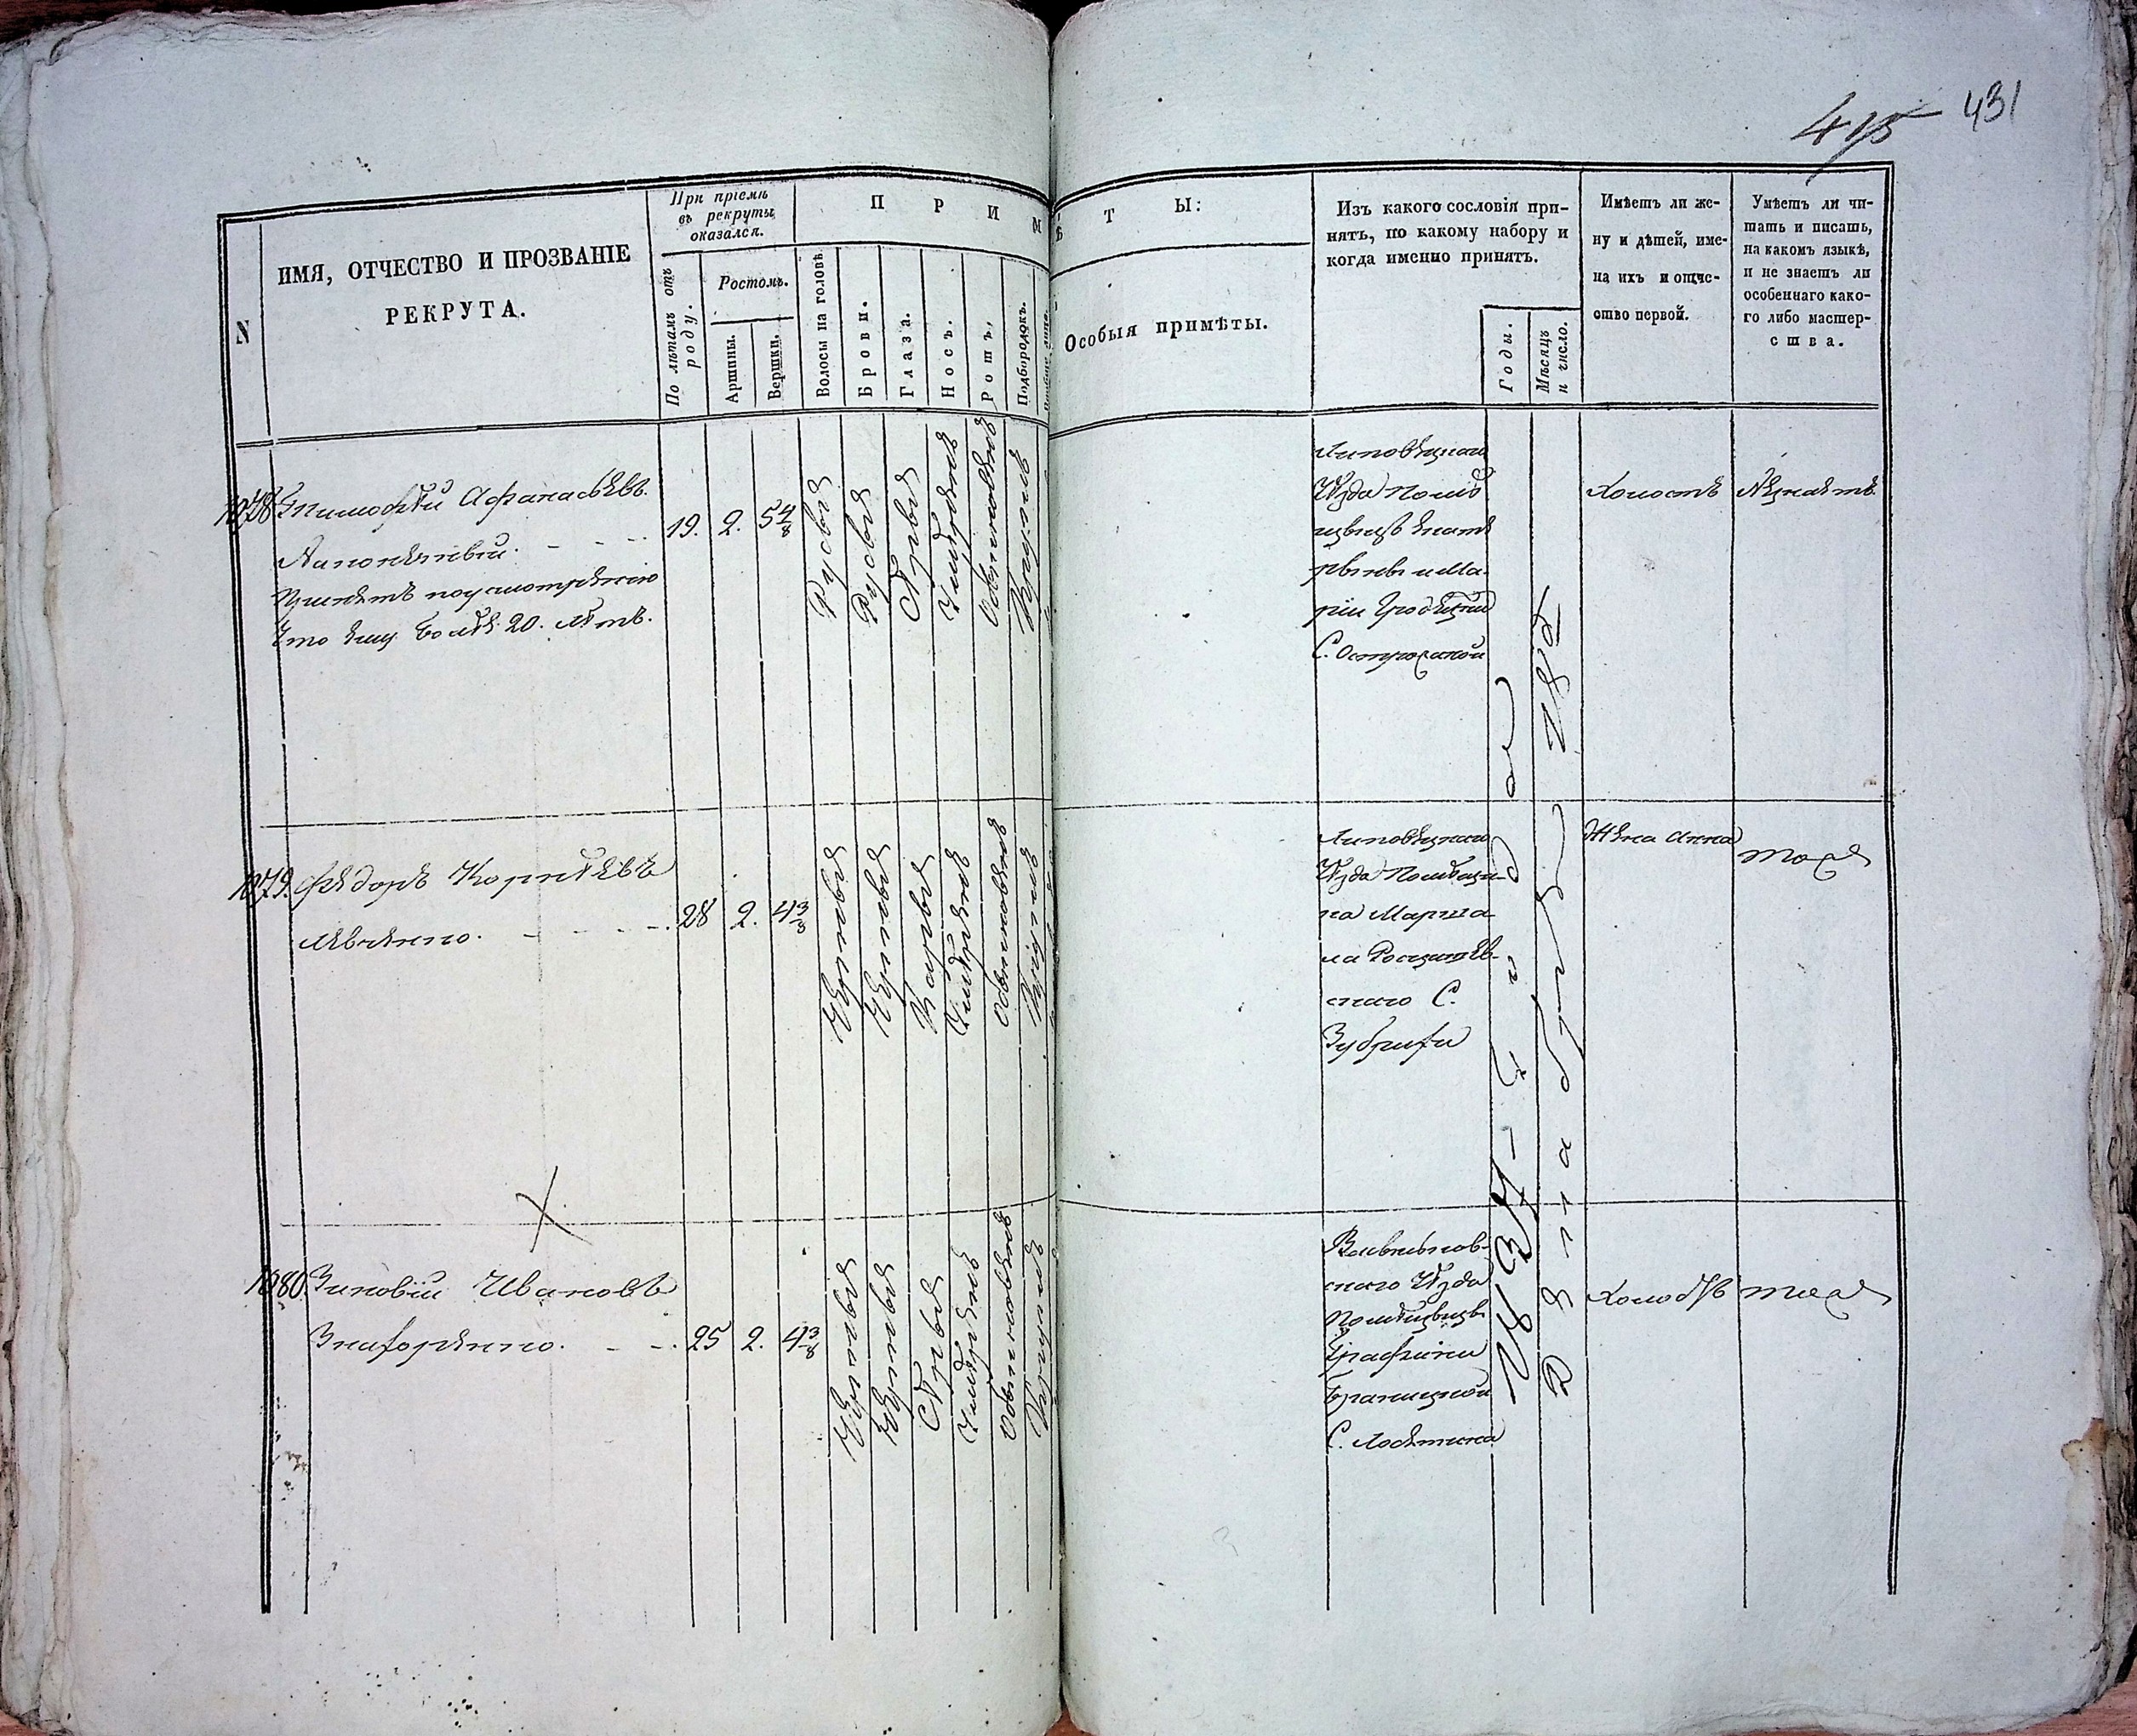 415 431
N
ИМЯ, ОТЧЕСТВО И ПРОЗВАНІЕ
РЕКРУТА.
При пріемѣ
въ рекруты
оказался.
По лѣтамъ отъ
роду.
Ростомъ.
Аршины.
Вершки.
П Р И М
Волосы на головѣ
Брови.
Глаза.
Носъ.
Ротъ.
Подбородокъ.
Ѣ Т Ы:
Особыя примѣты.
Изъ какого сословія при-
нятъ, по какому набору и
когда именно принятъ.
Годы.
Мѣсяцъ
и число.
Имѣетъ ли же-
ну и дѣтей, име-
на ихъ и отче-
ство первой.
Умѣетъ ли чи-
тать и писать,
на какомъ языкѣ,
и не знаетъ ли
особеннаго како-
го либо мастер-
ства.
1078. Тимофѣй Афанасьевъ
Принятъ по усмотрѣнію
что ему более 20. лѣтъ.
19. 2. 5 4/8
Русыя
Русыя
Сѣрыя
Умѣренъ
Обыкновенъ
Круглъ
Липовецкаго
Уѣзда Помѣ
щицъ Екате
рины и Ма-
ріи
С.
Холостъ
Незнаетъ
1079. Федоръ Корнѣевъ
Левченко.
28 2. 4 3/8
Черныя
Черныя
Карыя
Умѣренъ
Обыкновенъ
Круглъ
Липовецкаго
Уѣзда Помѣщи-
ка Марша-
ла Росцишев-
скаго С.
Зубрихи
Жена Анна
тоже
1080. Зиновій Ивановъ
Знахоренко.
25 2. 4 3/8
Черныя
Черныя
Сѣрыя
Умѣренъ
Обыкновенъ
Круглъ
Васильков-
скаго Уѣзда
Помѣщицы
Графини
Браницкой
С. Лосятина
Холостъ
тоже
1834-го года
Декабря 18д